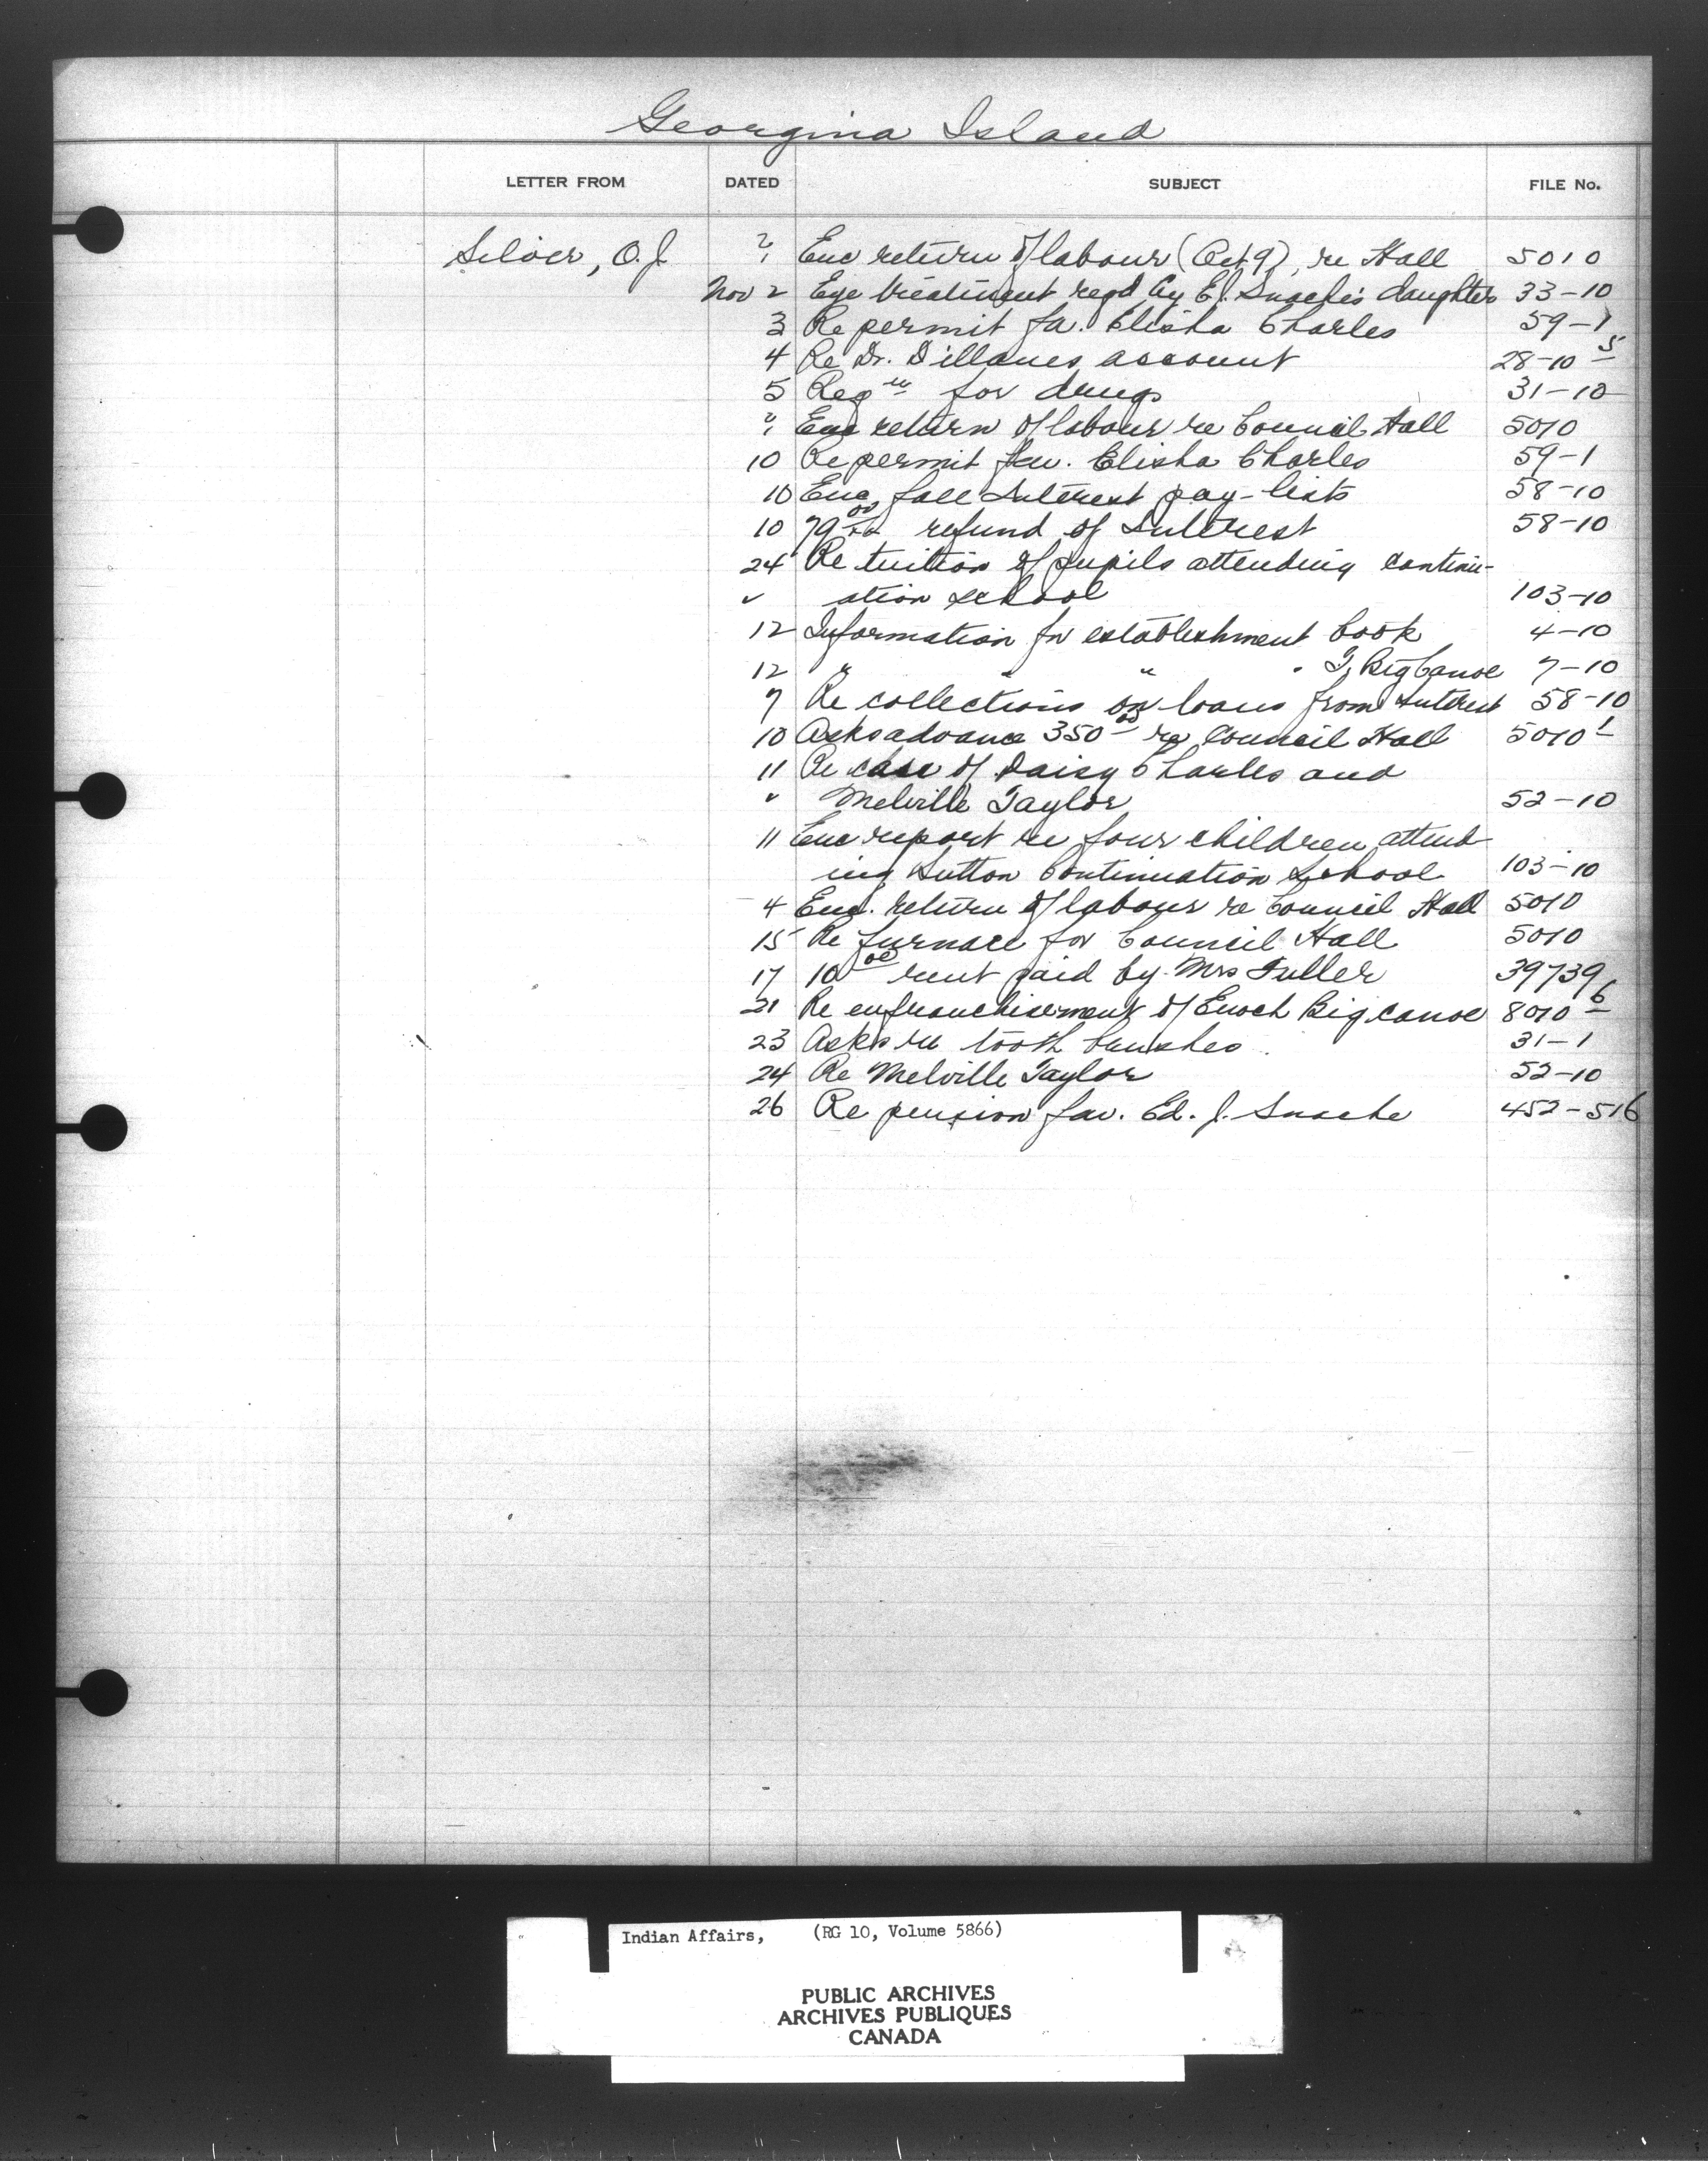 Georgina Island
LETTER FROM DATED SUBJECT FILE No.
Silver, O.J. ? Enc return of labour (Oct 9), re Hall 5010
Nov 2 Eye treatment reqd by E.J. Snache's daughter 33-10
3 Re permit fa. Elisha Charles 59-1
4 Re Dr. Dillanes account 28-10 5
5 Reqn for drugs 31-10
? Enc return of labour re Council Hall 5010
10 Re permit fav. Elisha Charles 59-1
10 Enc, fall Interest pay-lists 58-10
10 79 00/xx refund of Interest 58-10
24 Re tuition of pupils attending continu-
" ation school 103-10
12 Information for establishment book 4-10
12 " " " " T. BigCanoe 7-10
7 Re collections on loans from interest 58-10
10 Asks advance 350 00 re Council Hall 5010 1
11 Re case of Daisy Charles and
" Melville Taylor 52-10
11 Enc report re four children attend-
ing Sutton Continuation School 103-10
4 Enc. return of labour re Council Hall 5010
15 Re furnace for Council Hall 5010
17 10 00 rent paid by Mrs Fuller 39739
21 Re enfranchisement of Enoch Bigcanoe 8010 6
23 Asks re tooth brushes 31-1
24 Re Melville Taylor 52-10
26 Re pension fav. Ed. J. Snache 452-516
Indian Affairs, (RG 10, Volume 5866)
PUBLIC ARCHIVES
ARCHIVES PUBLIQUES
CANADA